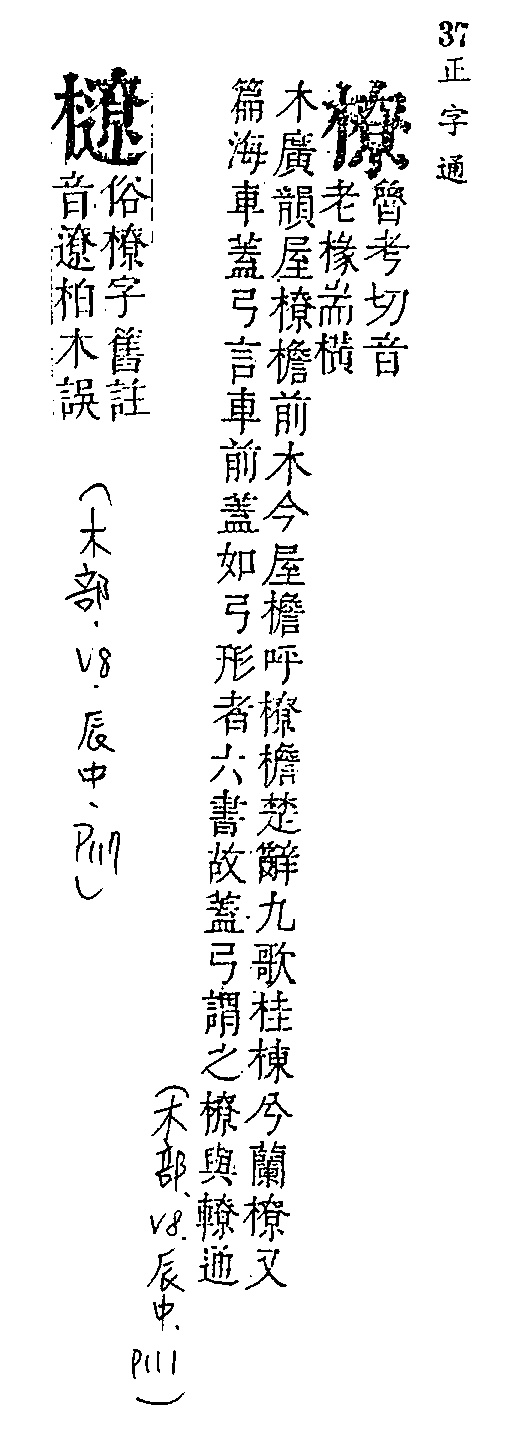 37
正字通
橑
魯考切音
老椽耑橫
木廣韻屋橑檐前木今屋檐呼橑檐楚辭九歌桂棟兮蘭橑又
篇海車蓋弓言車前蓋如弓形者六書故蓋弓謂之橑與轑通
(木部.V8.辰中.P111)
俗橑字舊註
音遼柏木誤
(木部.V8.辰中、P117)